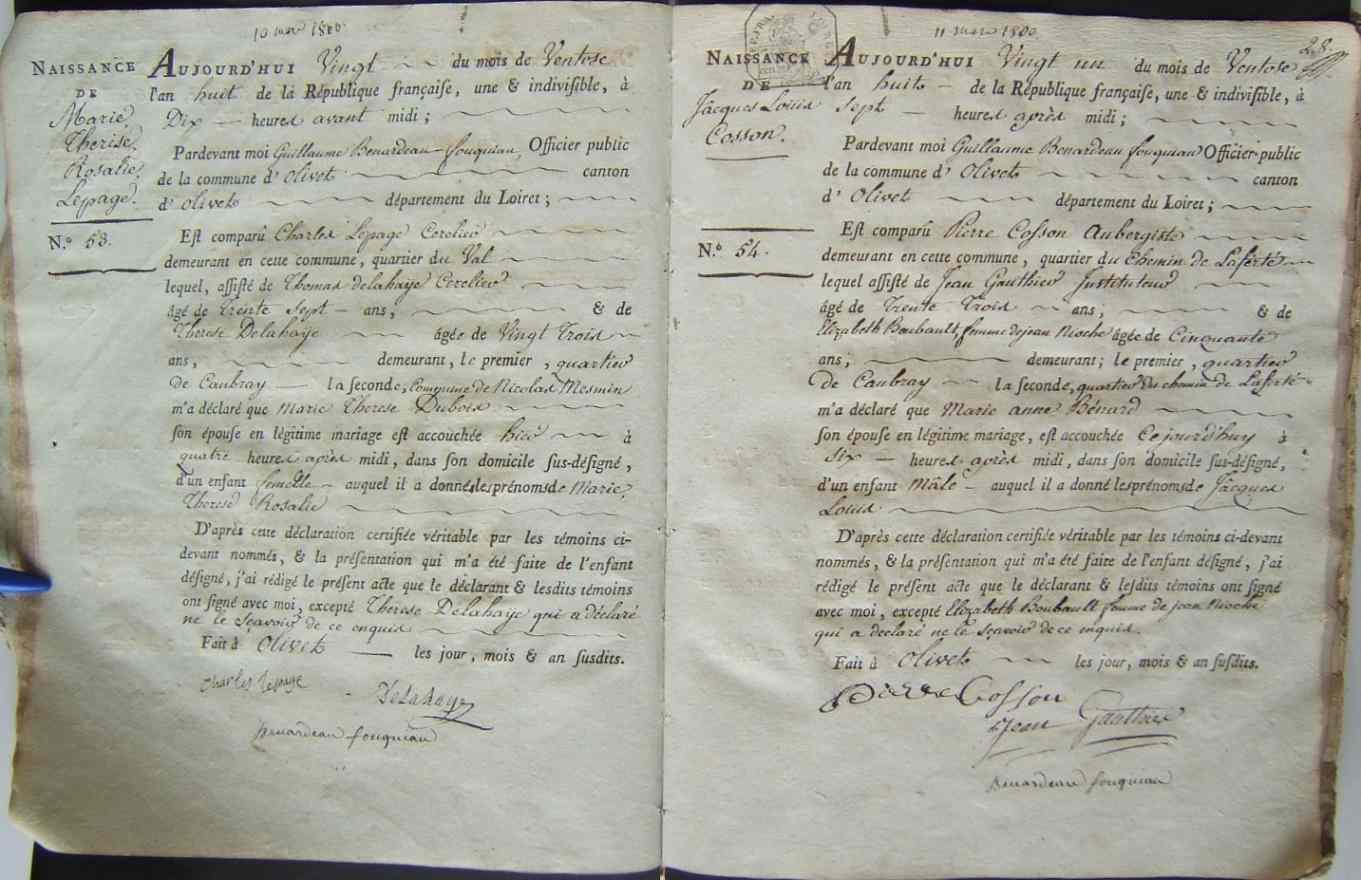 10 mars 1800.
NAISSANCE
DE
Marie
Therese
Rosalie
Lepage.
N.º 53.
AUJOURD'HUI Vingt du mois de Ventose
l'an huit de la République française, une & indivisible, à
Dix heures avant midi;
Pardevant moi Guillaume Benardeau fouqueau, Officier public
de la commune d'Olivet canton
d'Olivet département du Loiret;
Est comparû Charles Lepage Cerclier
demeurant en cette commune, quartier du Val
lequel, assisté de Thomas delahaye Cerclier
âgé de trente sept ans, & de
Therese Delahaye âgée de Vingt Trois
ans, demeurant, le premier, quartier
de Caubray la seconde, Commune de Nicolas Mesmin
m'a déclaré que Marie Therese Dubois
son épouse en légitime mariage est accouchée hier à
quatre heures après midi, dans son domicile sus-désigné,
d'un enfant femelle auquel il a donné les prénoms de Marie
Therese Rosalie
D'après cette déclaration certifiée véritable par les témoins ci-
devant nommés, & la présentation qui m'a été faite de l'enfant
désigné, j'ai rédigé le présent acte que le déclarant & lesdits témoins
ont signé avec moi, excepté Therese Delahaye qui a déclaré
ne le sçavoir de ce enquis
Fait à Olivet les jour, mois & an susdits.
Charles lepage
Delahaye
Benardeau fouqueau
11 mars 1800.
28
NAISSANCE
DE
Jacques Louis
Cosson.
N.º 54.
AUJOURD'HUI Vingt un du mois de Ventose
l'an huit de la République française, une & indivisible, à
sept heures après midi;
Pardevant moi Guillaume Benardeau fouqueau Officier public
de la commune d'Olivet canton
d'Olivet département du Loiret;
Est comparû Pierre Cosson Aubergiste
demeurant en cette commune, quartier du Chemin de Laferté
lequel assisté de Jean Gauthier Instituteur
âgé de Trente Trois ans; & de
Elizabeth Boubault, femme de jean Rioche âgée de Cinquante
ans; demeurant; le premier, quartier
de Caubray la seconde, quartier du chemin de Laferté
m'a déclaré que Marie anne Bénard
son épouse en légitime mariage, est accouchée Cejourd'huy à
Six heures après midi, dans son domicile sus-désigné,
d'un enfant Mâle auquel il a donné les prénoms de Jacques
Louis
D'après cette déclaration certifiée véritable par les témoins ci-devant
nommés, & la présentation qui m'a été faite de l'enfant désigné, j'ai
rédigé le présent acte que le déclarant & lesdits témoins ont signé
avec moi, excepté Elizabeth Boubault femme de jean Rioche
qui a déclaré ne le sçavoir de ce enquis.
Fait à Olivet les jour, mois & an susdits.
Pierre Cosson
Jean Gauthier
Benardeau fouqueau